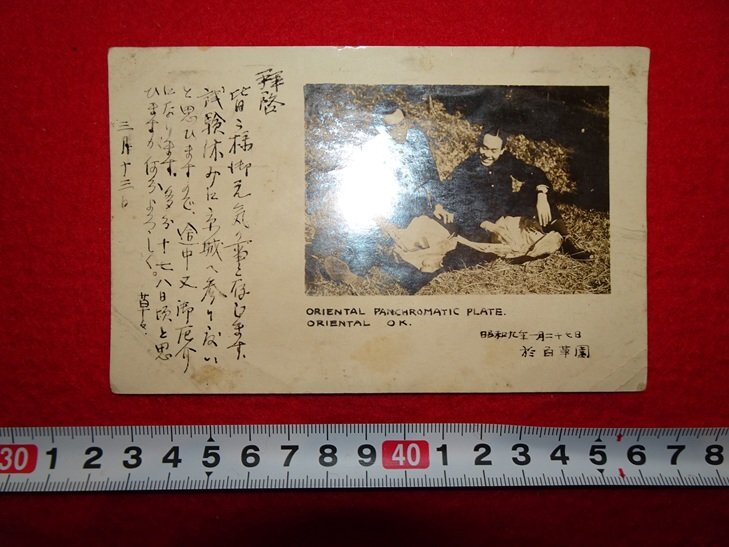 拝啓
皆々様御元気の事と存じます。
試験休みに京城へ参りたい
と思ひますので、途中又御厄介
になります。多分十七八日頃と思
ひますが何分よろしく。草々
三月十三日
ORIENTAL PANCHROMATIC PLATE.
ORIENTAL OK.
昭和九年一月二十七日
於百草園
30 1 2 3 4 5 6 7 8 9 40 1 2 3 4 5 6 7 8